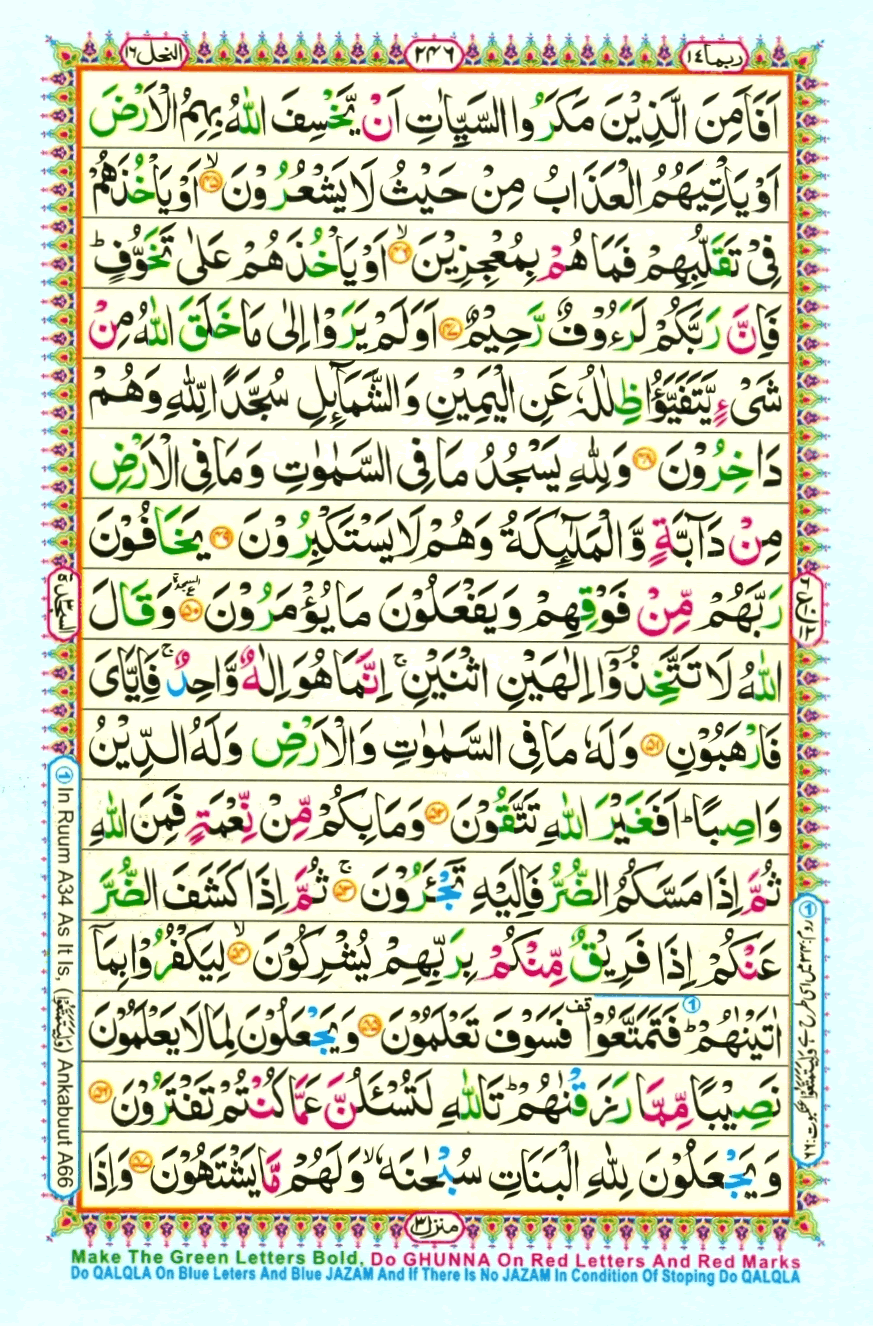 ربما ۱۴
۲۴۶
النحل ۱۶
اَفَاَمِنَ الَّذِيْنَ مَكَرُوا السَّيِّاٰتِ اَنْ يَّخْسِفَ اللّٰهُ بِهِمُ الْاَرْضَ
اَوْ يَاْتِيَهُمُ الْعَذَابُ مِنْ حَيْثُ لَا يَشْعُرُوْنَ ۙ‏﴿۴۵﴾ اَوْ يَاْخُذَهُمْ
فِىْ تَقَلُّبِهِمْ فَمَا هُمْ بِمُعْجِزِيْنَ ۙ‏﴿۴۶﴾ اَوْ يَاْخُذَهُمْ عَلٰى تَخَوُّفٍ ؕ
فَاِنَّ رَبَّكُمْ لَرَءُوْفٌ رَّحِيْمٌ ﴿۴۷﴾ اَوَلَمْ يَرَوْا اِلٰى مَا خَلَقَ اللّٰهُ مِنْ
شَىْءٍ يَّتَفَيَّؤُا ظِلٰلُهٗ عَنِ الْيَمِيْنِ وَالشَّمَآئِلِ سُجَّدًا لِّلّٰهِ وَهُمْ
دَاخِرُوْنَ ﴿۴۸﴾ وَلِلّٰهِ يَسْجُدُ مَا فِى السَّمٰوٰتِ وَمَا فِى الْاَرْضِ
مِنْ دَآبَّةٍ وَّالْمَلٰٓئِكَةُ وَهُمْ لَا يَسْتَكْبِرُوْنَ ﴿۴۹﴾ يَخَافُوْنَ
رَبَّهُمْ مِّنْ فَوْقِهِمْ وَيَفْعَلُوْنَ مَا يُؤْمَرُوْنَ ﴿۵۰﴾ السجدة وَقَالَ
اللّٰهُ لَا تَتَّخِذُوْٓا اِلٰهَيْنِ اثْنَيْنِ ۚ اِنَّمَا هُوَ اِلٰهٌ وَّاحِدٌ ۚ فَاِيَّاىَ
فَارْهَبُوْنِ ﴿۵۱﴾ وَلَهٗ مَا فِى السَّمٰوٰتِ وَالْاَرْضِ وَلَهُ الدِّيْنُ
وَاصِبًا ؕ اَفَغَيْرَ اللّٰهِ تَتَّقُوْنَ ﴿۵۲﴾ وَمَا بِكُمْ مِّنْ نِّعْمَةٍ فَمِنَ اللّٰهِ
ثُمَّ اِذَا مَسَّكُمُ الضُّرُّ فَاِلَيْهِ تَجْئَرُوْنَ ۚ‏﴿۵۳﴾ ثُمَّ اِذَا كَشَفَ الضُّرَّ
عَنْكُمْ اِذَا فَرِيْقٌ مِّنْكُمْ بِرَبِّهِمْ يُشْرِكُوْنَ ۙ‏﴿۵۴﴾ لِيَكْفُرُوْا بِمَآ
اٰتَيْنٰهُمْ ؕ فَتَمَتَّعُوْا قف فَسَوْفَ تَعْلَمُوْنَ ﴿۵۵﴾ وَيَجْعَلُوْنَ لِمَا لَا يَعْلَمُوْنَ
نَصِيْبًا مِّمَّا رَزَقْنٰهُمْ ؕ تَاللّٰهِ لَتُسْئَلُنَّ عَمَّا كُنْتُمْ تَفْتَرُوْنَ ﴿۵۶﴾
وَيَجْعَلُوْنَ لِلّٰهِ الْبَنَاتِ سُبْحٰنَهٗ ۙ وَلَهُمْ مَّا يَشْتَهُوْنَ ﴿۵۷﴾ وَاِذَا
السجدة ۳
① In Ruum A34 As It Is, (وَلِيَتَمَتَّعُوْا) Ankabuut A66
منزل ۳
Make The Green Letters Bold, Do GHUNNA On Red Letters And Red Marks
Do QALQLA On Blue Leters And Blue JAZAM And If There Is No JAZAM In Condition Of Stoping Do QALQLA